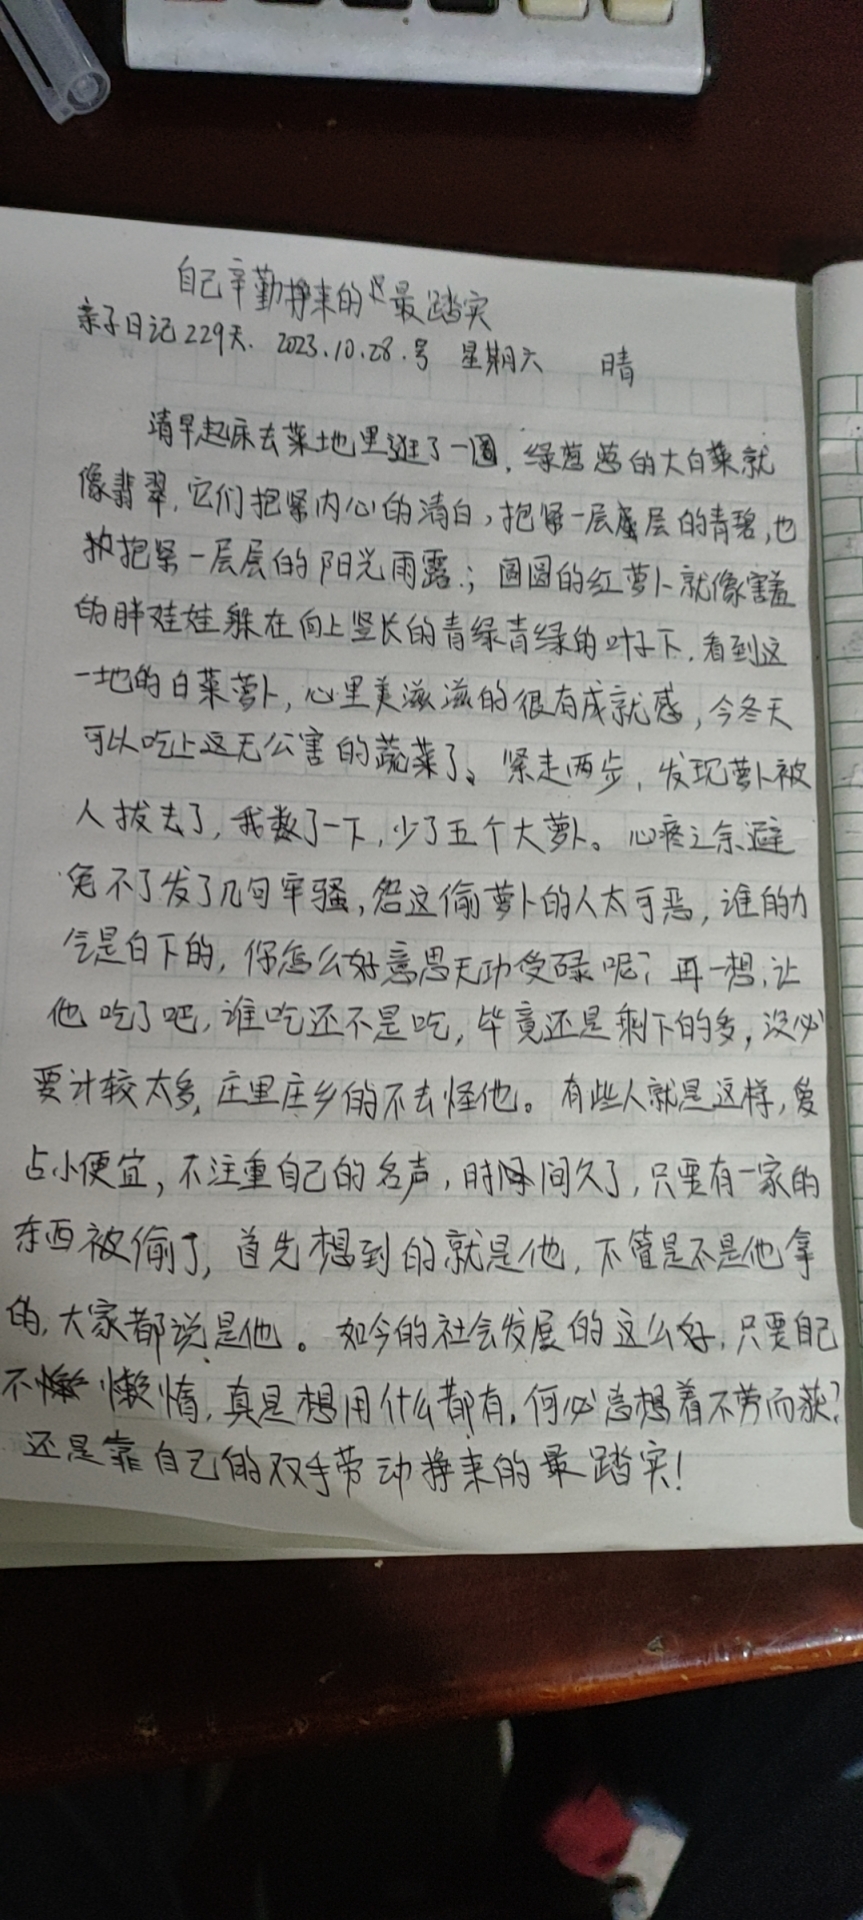 自己辛勤挣来的最踏实
亲子日记229天. 2023.10.28.号 星期六 晴
清早起床去菜地里逛了一圈，绿葱葱的大白菜就
像翡翠，它们抱紧内心的清白，抱紧一层层的青碧，也
抱紧一层层的阳光雨露；圆圆的红萝卜就像害羞
的胖娃娃躲在向上竖长的青绿青绿的叶子下，看到这
一地的白菜萝卜，心里美滋滋的很有成就感，今冬天
可以吃上这无公害的蔬菜了。紧走两步，发现萝卜被
人拔去了，我数了一下，少了五个大萝卜。心疼之余避
免不了发了几句牢骚，怨这偷萝卜的人太可恶，谁的力
气是白下的，你怎么好意思无功受碌呢？再一想，让
他吃了吧，谁吃还不是吃，毕竟还是剩下的多，没必
要计较太多，庄里庄乡的不去怪他。有些人就是这样，爱
占小便宜，不注重自己的名声，时间久了，只要有一家的
东西被偷了，首先想到的就是他，不管是不是他拿
的，大家都说是他。如今的社会发展的这么好，只要自己
不懒惰，真是想用什么都有，何必总想着不劳而获？
还是靠自己的双手劳动挣来的最踏实！